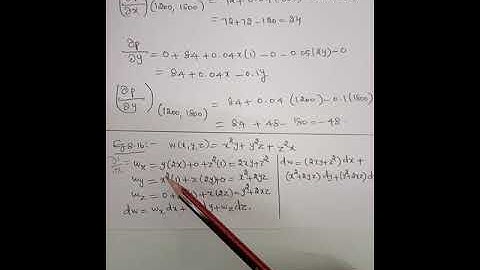 (∂p/∂x) (1200, 1800)
= 72+72-120=24
∂p/∂y = 0+84+0.04x(1)-0-0.05(2y)-0
= 84+0.04x-0.1y
(∂p/∂y) (1200, 1800) = 84+0.04(1200)-0.1(1800)
= 84+48-180=-48
Eg 8.16:- w(x,y,z) = x²y+y²z+z²x
wx = y(2x)+0+z²(1)=2xy+z²
wy = x²(1)+z(2y)+0 = x²+2yz
wz = 0+ +x(2z)=y²+2xz
dw = wx dx+ dy+wz dz.
dw=(2xy+z²)dx+
(x²+2yz)dy+(y²+2xz)dz